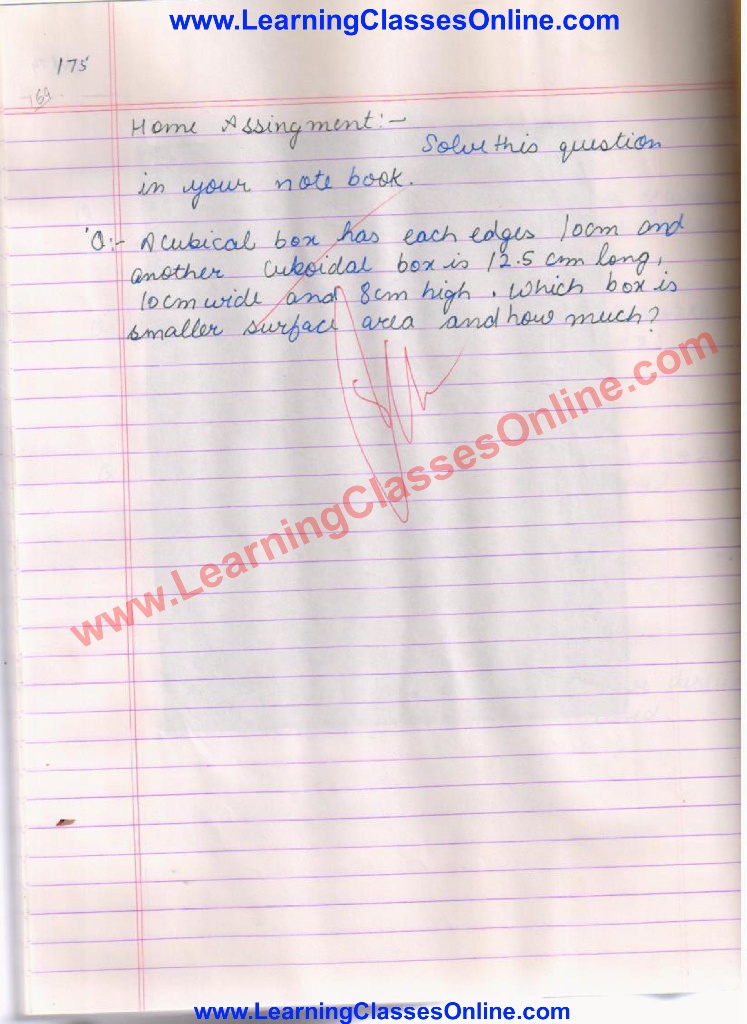 www.LearningClassesOnline.com
175
169
Home Assingment:-
Solve this question
in your note book.
Q:- A cubical box has each edges 10cm and
another cuboidal box is 12.5 cm long,
10cm wide and 8cm high. Which box is
smaller surface area and how much?
www.LearningClassesOnline.com
www.LearningClassesOnline.com